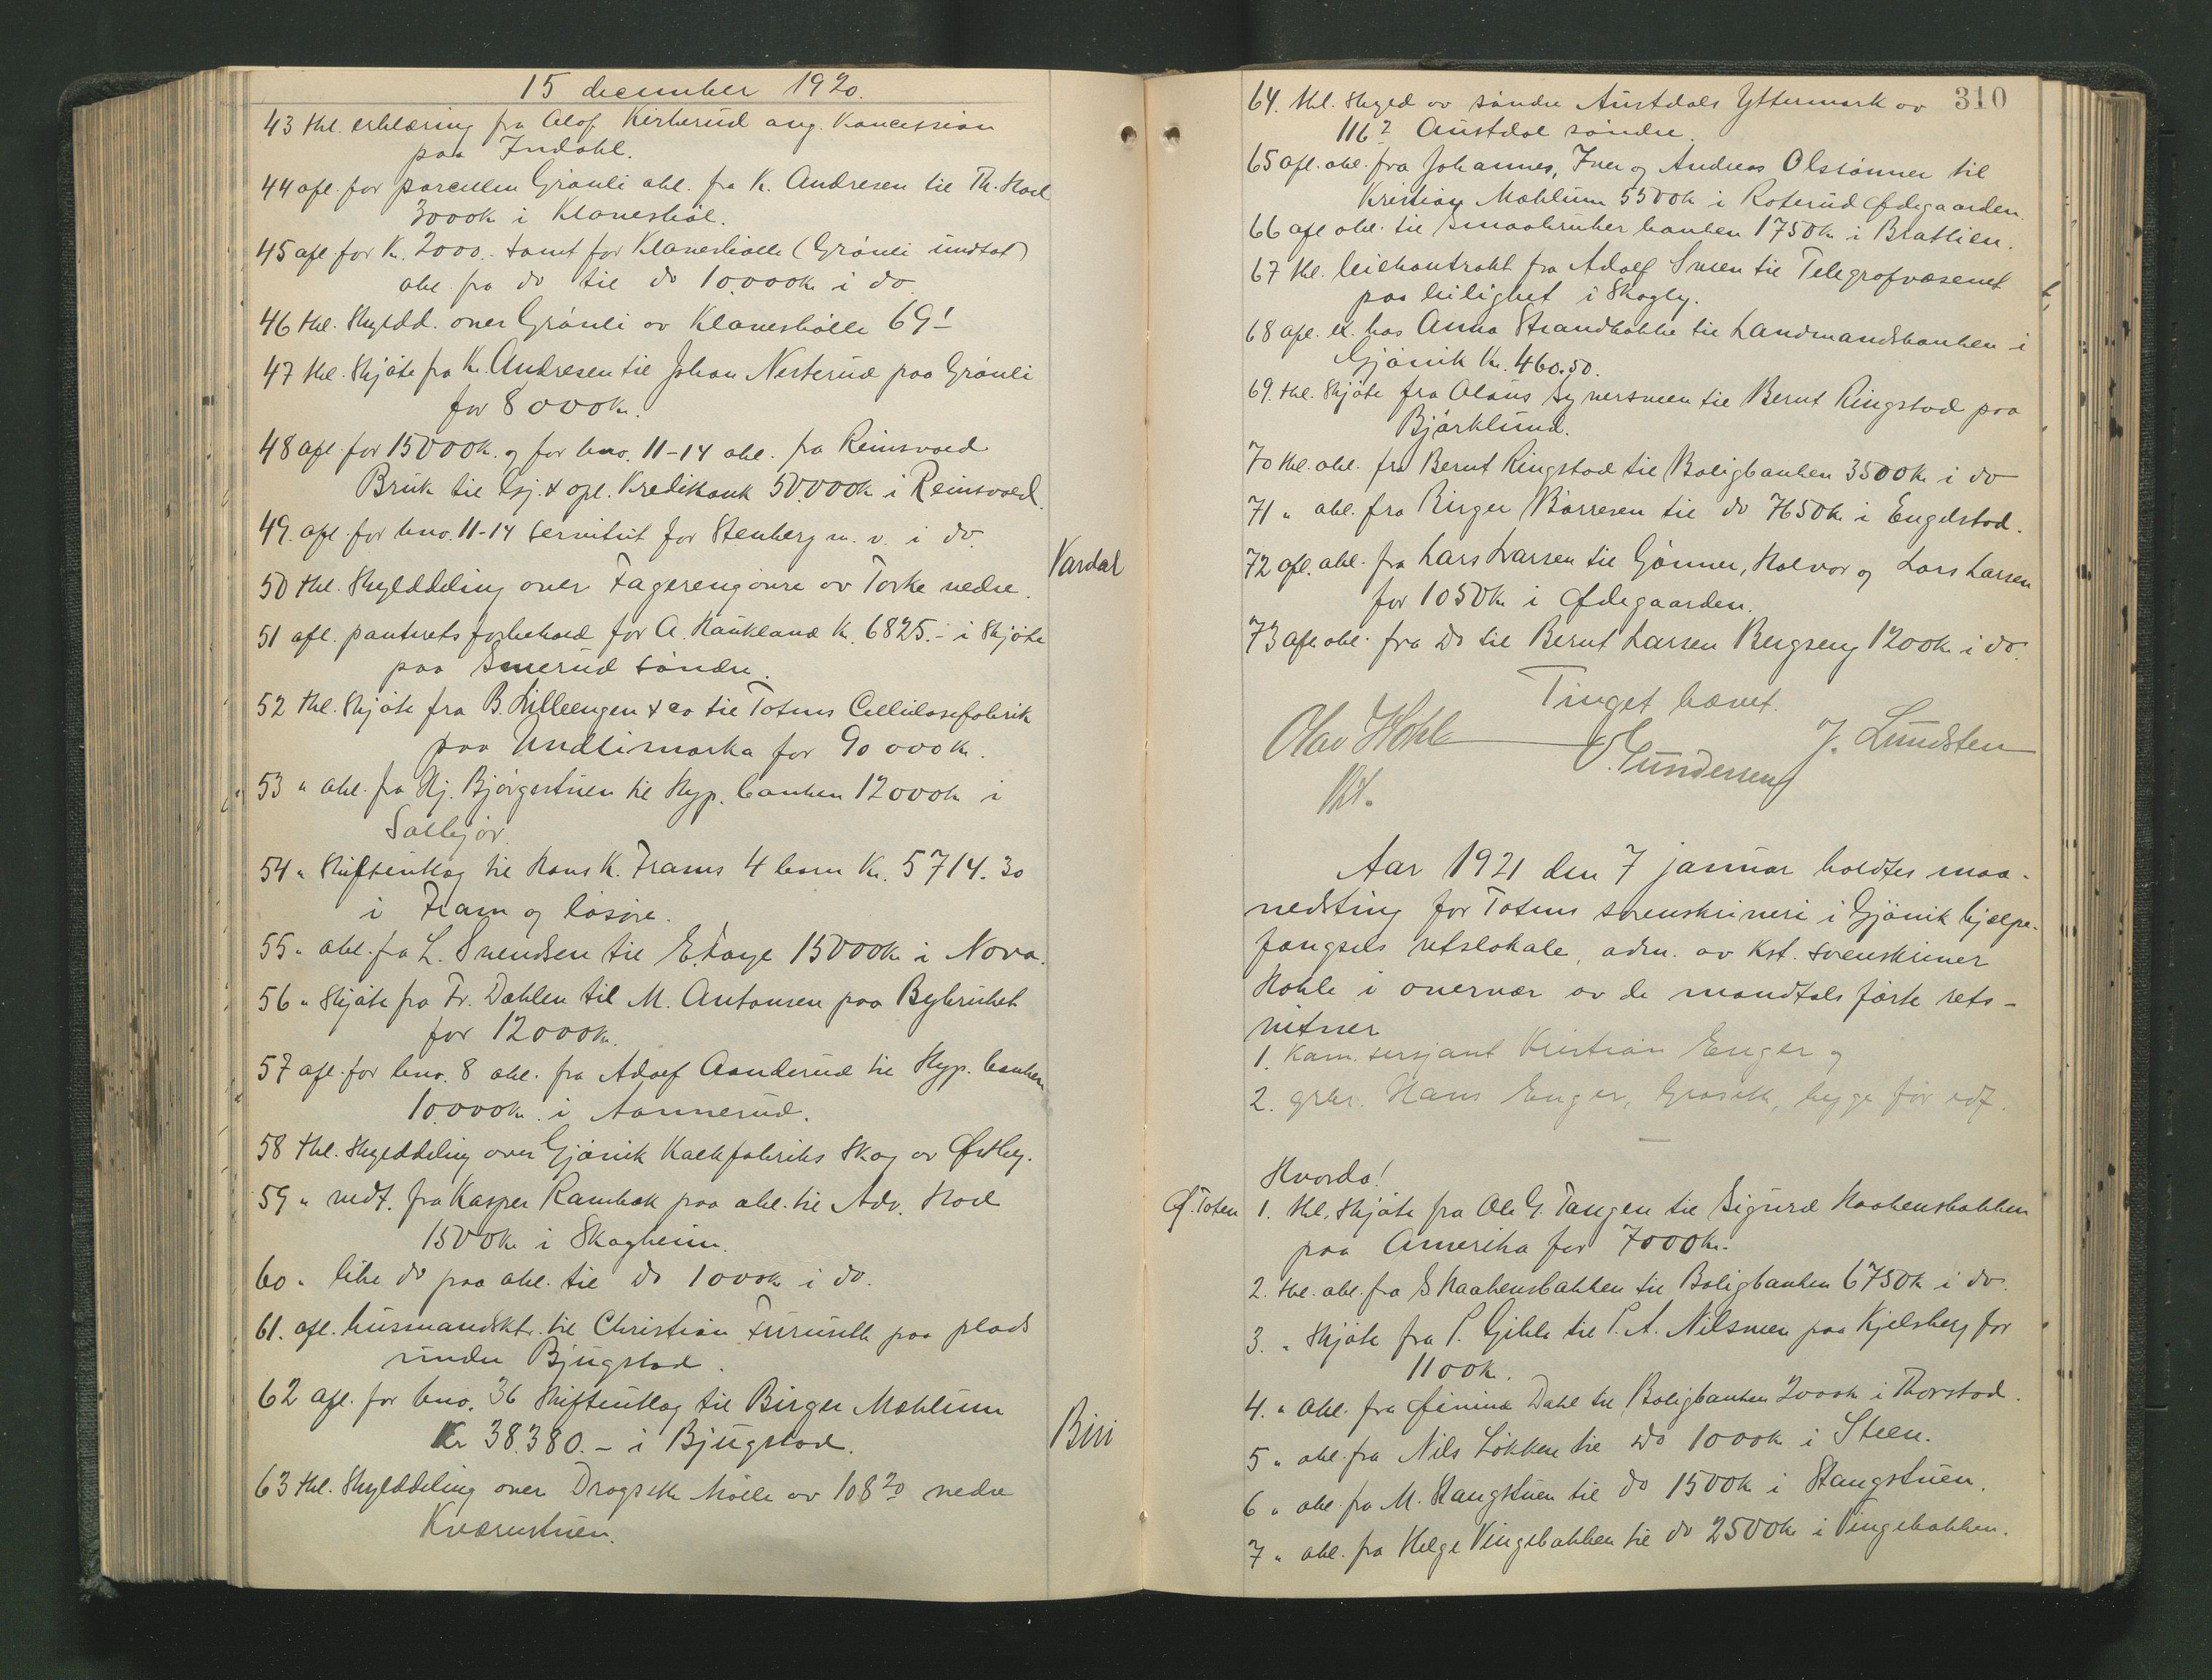 15 december 1920.
43 thl. erklæring fra Olof Kirkerud ang. koncession
paa Indahl.
44 afl. for parcellen Grønli obl. fra K. Andresen til Th. Hoel
3000k i Klaneshøl.
45 afl for Kr. 2000.- samt for Klaneshølle (Grønli undtat)
obl. fra do til do 10.000kr i do
46 thl. Skyldd. over Grønli av Klaneshølle 69¹
47 thl. Skjøte fra Kr. Andresen til Johan Nesterud paa Grønli
for 8000kr.
48 afl. for 15000kr. og for bno. 11-14 obl. fra Reinsvold
Bruk til Gj. & opl. Kreditbank 50.000kr i Reinsvold.
49. afl. for bno. 11-14 servitut for Stenberg m. v. i do.
Vardal
50 thl. Skylddeling over Fagerengøvre av Torke nedre.
51 afl. panterets forbehold for A. Haukland Kr. 6825.- i Skjøte
paa Smerud søndre.
52 thl. Skjøte fra B. Lilleengen & co til Totens Cellulosefabrik
paa Undlimarka for 90000kr.
53 " obl. fra Hj. Bjørgestuen til Hyp. banken 12000kr i
54 " Skifteutlæg til Hans K. Frams 4 barn Kr. 5714.30
i Fram og løsøre.
55 " obl. fra L. Svendsen til 15000kr i Nora.
56 " Skjøte fra Fr. Dæhlen til M. Antonsen paa Bybruket
for 12000kr.
57 afl. for bno. 8 obl. fra Adolf Aanderud til Hyp. banken
10.000kr. i Aannerud.
58 thl. Skylddeling over Gjøvik Kalkfabriks Skog av Østby.
59 " nedt. fra Kasper Rambæk paa obl. til Adv. Hoel
1500kr i Skogheim.
60 " like do paa obl. til do 1000kr i do.
61. afl. husmandsktr. til Christian Furuseth paa plads
under Bjugstad.
62 afl. for bno. 36 Skifteutlæg til Birger Mæhlum
Kr 38.380.- i Bjugstad.
Biri
63 thl. Skylddeling over Dragseth Mølle av 108²⁰ nedre
Kværnstuen.
310
64. thl. Skyld av søndre Austdals Yttermark av
116² Austdal søndre.
65 afl. obl. fra Johannes, Iver og Andreas Olssønner til
Kristian Mæhlum 5500kr i Roterud Ødegaarden.
66 afl obl. til Smaabruker banken 1750kr i Bratlien.
67 thl. leiekontrakt fra Adolf Sveen til Telegrafvæsenet
paa leilighet i Skogly.
68 afl. ex. hos Anna Strandbakke til Landmandsbanken i
Gjøvik Kr. 460.50.
69. thl. Skjøte fra Olaus Synersveen til Bernt Ringstad paa
Bjørklund.
70 thl. obl. fra Bernt Ringstad til Boligbanken 3500kr i do
71 " obl. fra Birger Børresen til do 7650kr i Engelstad.
72 afl. obl. fra Lars Larsen til Gunner, Halvor og Lars Larsen
for 1050kr i Ødegaarden.
73 afl. obl. fra Do til Bernt Larsen Bergseng 1200kr i do.
Tinget hævet.
Olav Hohle O. Gundersen J. Lundsten
kst.
Aar 1921 den 7 januar holdtes maa-
nedsting for Totens sorenskriveri i Gjøvik hjælpe-
fængsels retslokale, adm. av kst. sorenskriver
Hohle i overvær av de mandtals førte rets-
vitner
1. Kam. sersjant Kristian Enger og
2. grbr. Hans Enger, begge før edf.
Hvorda!
Ø. Toten
1. thl. Skjøte fra Ole G. Tangen til Sigurd Haakensbakken
paa Amerika for 7000kr.
2. thl. obl. fra S. Haakensbakken til Boligbanken 6750kr i do.
3. " Skjøte fra P. Gihle til P. A. Nilsveen paa Kjelsberg for
1100kr.
4. " obl. fra Dahl til Boligbanken 2000kr i Thorstad.
5 " obl. fra Nils Løkken til Do 1000kr i Steen.
6 " obl. fra M. Stangstuen til do 1500kr i Stangstuen.
7 " obl. fra Helge Vingebakken til do 2500kr i Vingebakken.